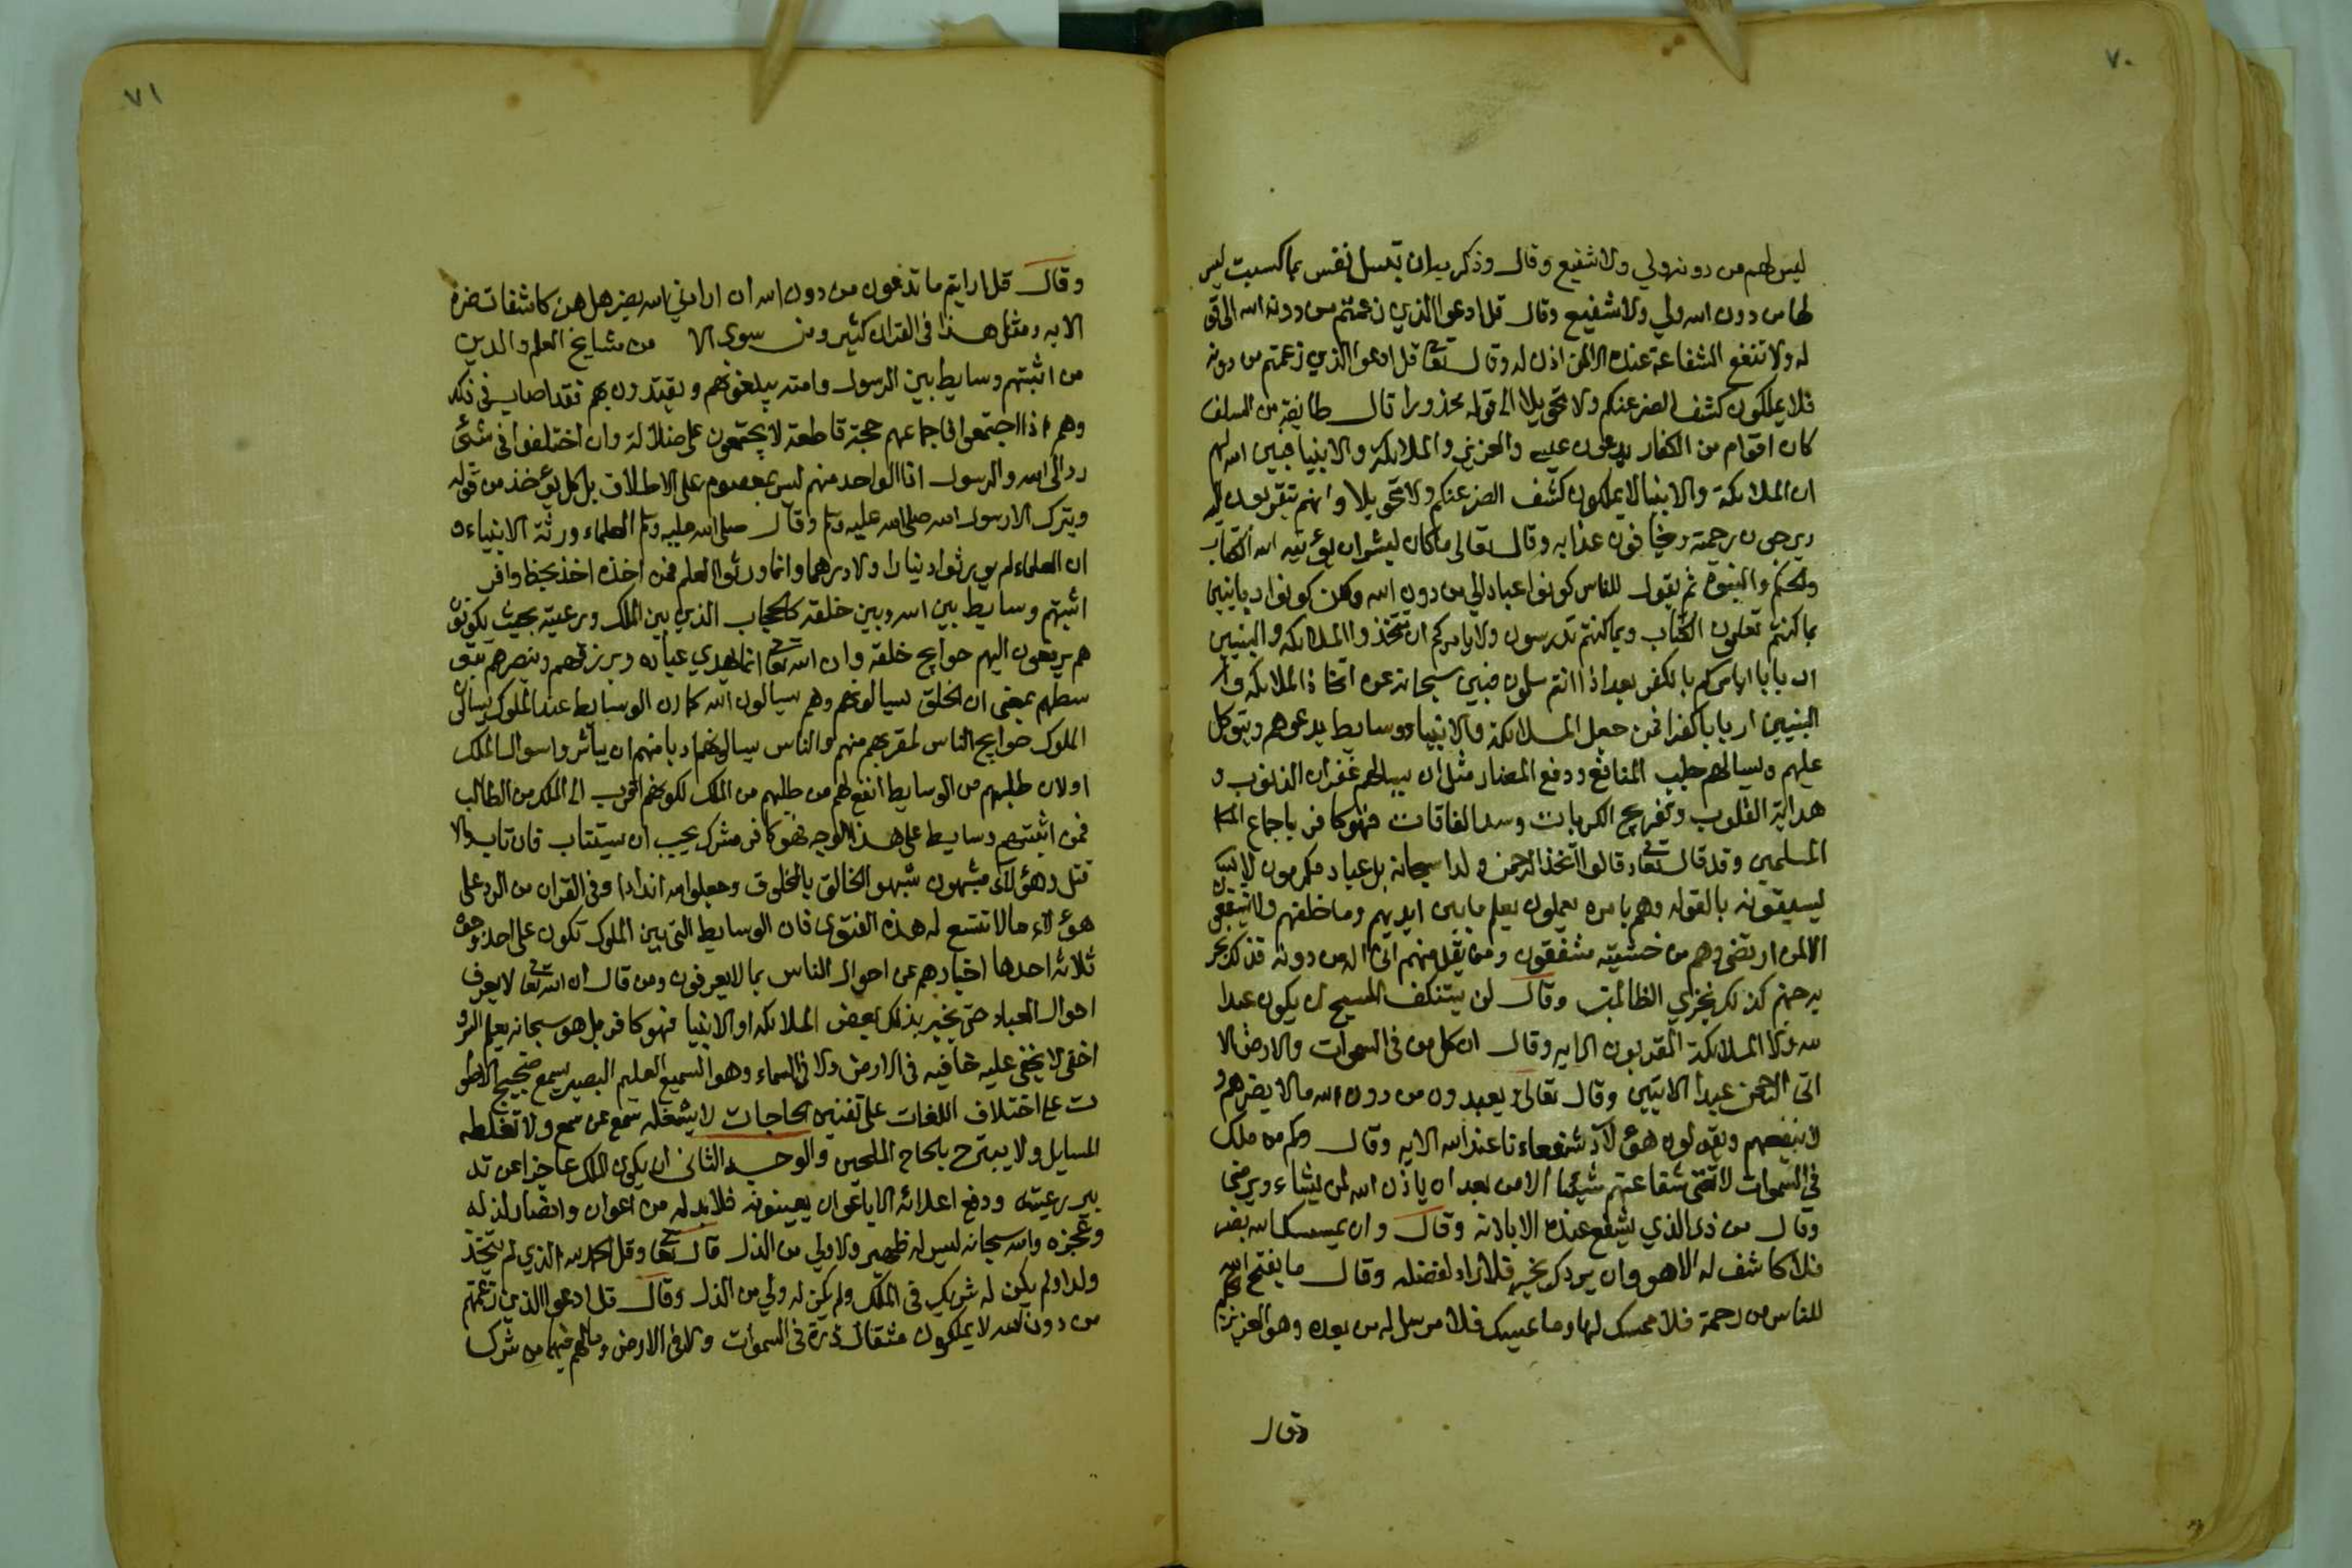 ٧٠
ليس لهم من دونه ولي ولا شفيع وقال وذكر به ان تبسل نفس بما كسبت ليس
لها من دون الله ولي ولا شفيع وقال قل ادعوا الذين زعمتم من دونه الى قو
له ولا تنفع الشفاعة عنده الا لمن اذن له وقال تعا قل ادعوا الذين زعمتم من دونه
فلا يملكون كشف الضر عنكم ولا تحويلا الى قوله محذورا قال طايفة من السلف
كان اقوام من الكفار يدعون عيسى والعزير والملايكة والانبيا فبين الله لهم
ان الملايكة والانبيا لا يملكون كشف الضر عنكم ولا تحويلا وانهم يتقربون اليه
ويرجون رحمته ويخافون عذابه وقال تعالى ما كان لبشر ان يؤتيه الله الكتاب
والحكم والنبوة ثم يقول للناس كونوا عبادا لي من دون الله ولكن كونوا ربانيين
بما كنتم تعلمون الكتاب وبما كنتم تدرسون ولا يامركم ان تتخذوا الملايكه والنبيين
اربابا ايامركم بالكفر بعد اذ انتم مسلمون فبين سبحانه عن اتخاذ الملايكه وا
النبيين اربابا كفر فمن جعل الملايكة والانبياء وسايط يدعوهم ويتوكل
عليهم ويسالهم جلب المنافع ودفع المضار مثل ان يسالهم غفران الذنوب و
هداية القلوب وتفريج الكربات وسد الفاقات فهو كافر باجماع
المسلمين وقد قال تعا وقالوا اتخذ الرحمن ولدا سبحانه بل عباد مكرمون لا
يسبقونه بالقول وهم بامره يعملون يعلم ما بين ايديهم وما خلفهم ولا يشفعون
الا لمن ارتضى وهم من خشيته مشفقون ومن يقل منهم اني اله من دونه فذلك نجز
يه جهنم كذلك نجزي الظالمين وقال لن يستنكف المسيح ان يكون عبدا
لله ولا الملايكة المقربون الايه وقال ان كل من في السموات والارض الا
اتى الرحمن عبدا الايتين وقال تعالى ويعبدون من دون الله ما لا يضرهم و
لا ينفعهم ويقولون هؤلاء شفعاءنا عند الله الايه وقال وكم من ملك
في السموات لا تغني شفاعتهم شيئا الا من بعد ان ياذن الله لمن يشاء ويرضى
وقال من ذى الذي يشفع عنده الا باذنه وقال وان يمسسك الله بضر
فلا كاشف له الا هو وان يردك بخير فلا راد لفضله وقال ما يفتح الله
للناس من رحمة فلا ممسك لها وما يمسك فلا مرسل له من بعده وهو العزيز الحكيم
وقال
٧١
وقال قل ارايتم ما تدعون من دون الله ان ارادني الله بضر هل هن كاشفات ضره
الايه ومثل هذا في القران كثير ومن سوى الا من مشايخ العلم والدين
من اثبتهم وسايط بين الرسول وامته يبلغونهم ويقتدون بهم فقد اصاب في ذلك
وهم اذا اجتمعوا فاجماعهم حجة قاطعة لا يجتمعون على ضلالة وان اختلفوا في شئ
رد الى الله والرسول اذ الواحد منهم ليس بمعصوم على الاطلاق بل كل يؤخذ من قوله
ويترك الا رسول الله صلى الله عليه وسلم وقال صلى الله عليه وسلم العلماء ورثة الانبياء و
ان العلماء لم يورثوا دينارا ولا درهما وانما ورثوا العلم فمن اخذه اخذ بحظ وافر
اثبتهم وسايط بين الله وبين خلقه كالحجاب الذين بين الملك ورعيته بحيث يكونون
هم يرفعون اليهم حوايج خلقه وان الله تعا انما يهدي عباده ويرزقهم وينصرهم بتو
سطهم بمعنى ان الخلق يسالونهم وهم يسالون الله كما ان الوسايط عند الملوك يسالون
الملوك حوايج الناس لقربهم منهم والناس يسالونهم ادبا منهم ان يباشروا سوال الملك
اولان طلبهم من الوسايط انفع لهم من طلبهم من الملك لكونهم اقرب الى الملك من الطالب
فمن اثبتهم وسايط على هذا الوجه فهو كافر مشرك يجب ان يستتاب فان تاب والا
قتل وهؤلاء مشبهون شبهوا الخالق بالمخلوق وجعلوا لله اندادا وفي القران من الرد على
هؤلاء ما لا تتسع له هذه الفتوى فان الوسايط التي بين الملوك تكون على احد وجوه
ثلاثة احدها اخبارهم عن احوال الناس بما لا يعرفون ومن قال ان الله تعا لا يعرف
احوال العباد حتى يخبر بذلك بعض الملايكه او الانبيا فهو كافر بل هو سبحانه يعلم السر و
اخفى لا يخفى عليه خافيه في الارض ولا في السماء وهو السميع العليم البصير يسمع ضجيج الاصوا
ت على اختلاف اللغات على تفنين الحاجات لا يشغله سمع عن سمع ولا تغلطه
المسايل ولا يبترح بالحاح الملحين والوجه الثانى ان يكون الملك عاجزا عن تد
بير رعيته ودفع اعدائه الا باعوان يعينونه فلا بد له من اعوان وانصار لذله
وعجزه والله سبحانه ليس له ظهير ولا ولي من الذل قال تعا وقل الحمد لله الذي لم يتخذ
ولدا ولم يكن له شريك في الملك ولم يكن له ولي من الذل وقال قل ادعوا الذين زعمتم
من دون الله لا يملكون مثقال ذرة في السموات ولا في الارض وما لهم فيهما من شرك